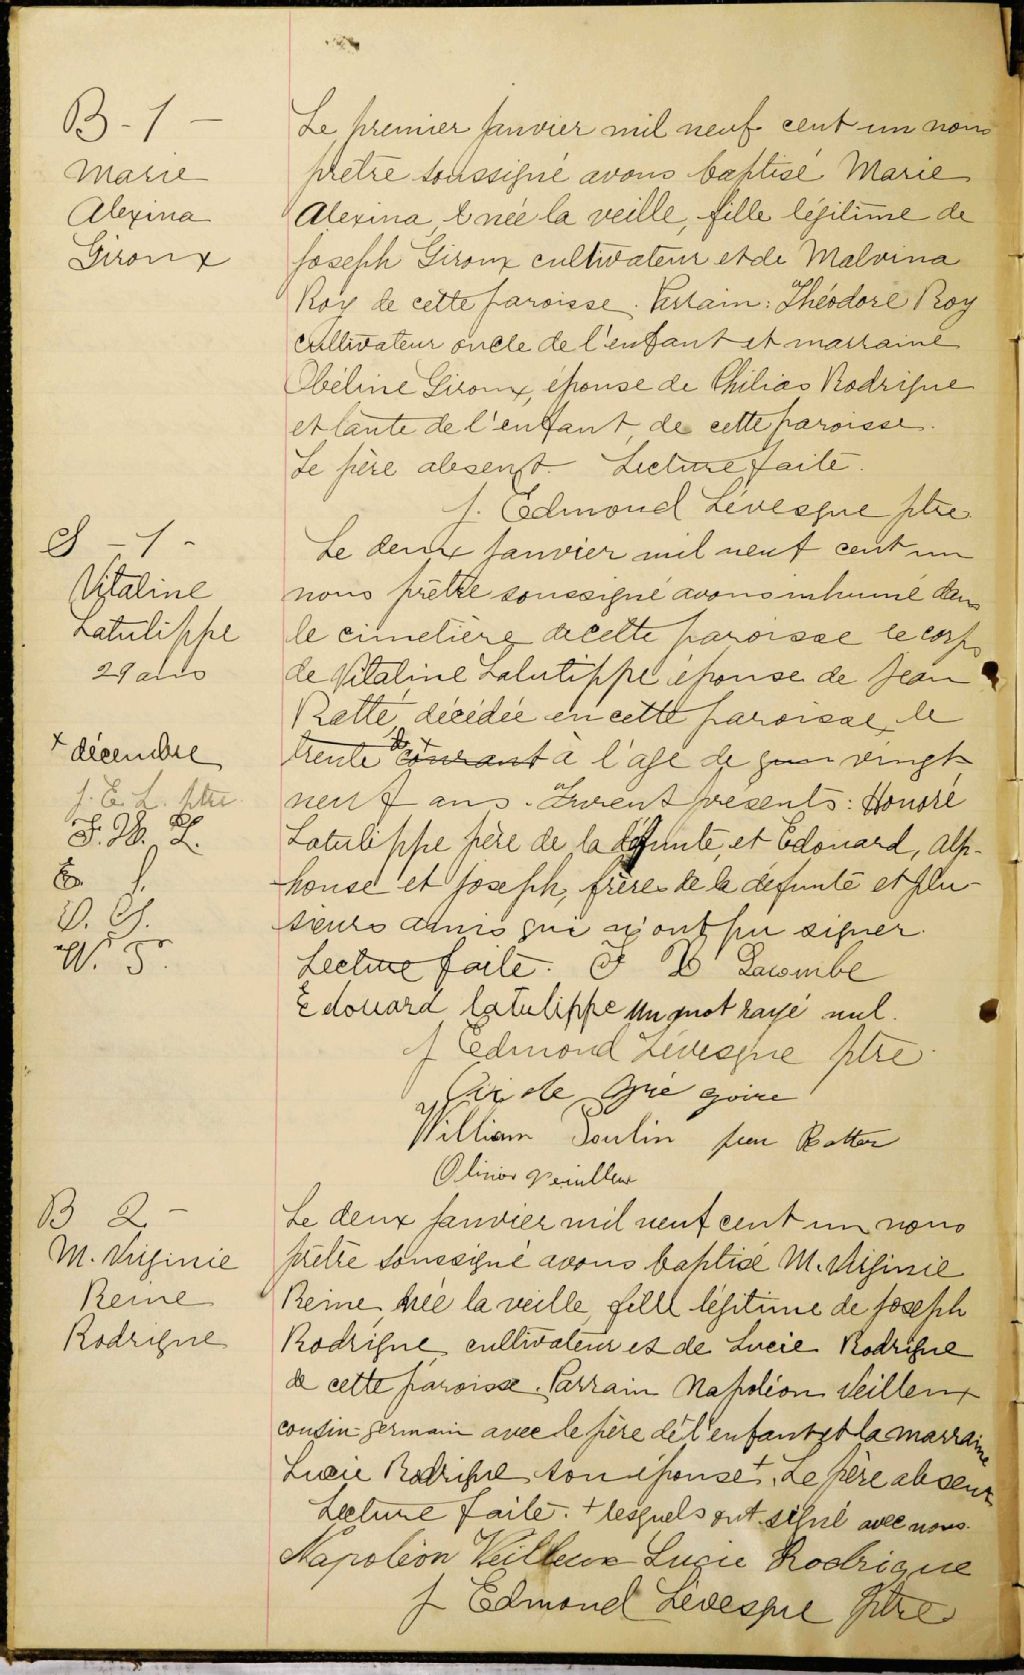 B - 1 -
Marie
Alexina
Giroux
Le premier janvier mil neuf cent un nous
prêtre soussigné avons baptisé Marie
Alexina, née la veille, fille légitime de
Joseph Giroux cultivateur et de Malvina
Roy de cette paroisse. Parrain: Théodore Roy
cultivateur oncle de l'enfant et marraine
Obéline Giroux, épouse de Philias Rodrigue
et tante de l'enfant, de cette paroisse.
Le père absent. Lecture faite.
J. Edmond Lévesque ptre
S - 1 -
Vitaline
Latulippe
29 ans
+ décembre
J. E. L. ptre
F. X. L.
E. L.
O. G.
W. P.
Le deux janvier mil neuf cent un
nous prêtre soussigné avons inhumé dans
le cimetière de cette paroisse le corps
de Vitaline Latulippe épouse de Jean
Ratté, décédée en cette paroisse, le
trente de + courant à l'age de vingt
neuf ans. Furent présents: Honoré
Latulippe père de la défunte, et Edouard, Alp-
honse et Joseph, frères de la défunte et plu-
sieurs amis qui n'ont pu signer.
Lecture faite. F X Lacombe
Edouard latulippe un mot rayé nul.
J Edmond Lévesque ptre
gré goire
William Poulin
Veilleux
B 2 -
M. Virginie
Reine
Rodrigue
Le deux janvier mil neuf cent un nous
prêtre soussigné avons baptisé M. Virginie
Reine, née la veille, fille légitime de Joseph
Rodrigue, cultivateur et de Lucie Rodrigue
de cette paroisse. Parrain Napoléon Veilleux
cousin-germain avec le père de l'enfant et la marraine
Lucie Rodrigue son épouse +. Le père absent
Lecture faite. + lesquels ont signé avec nous.
Napoléon Veilleux Lucie Rodrigue
J Edmond Lévesque ptre